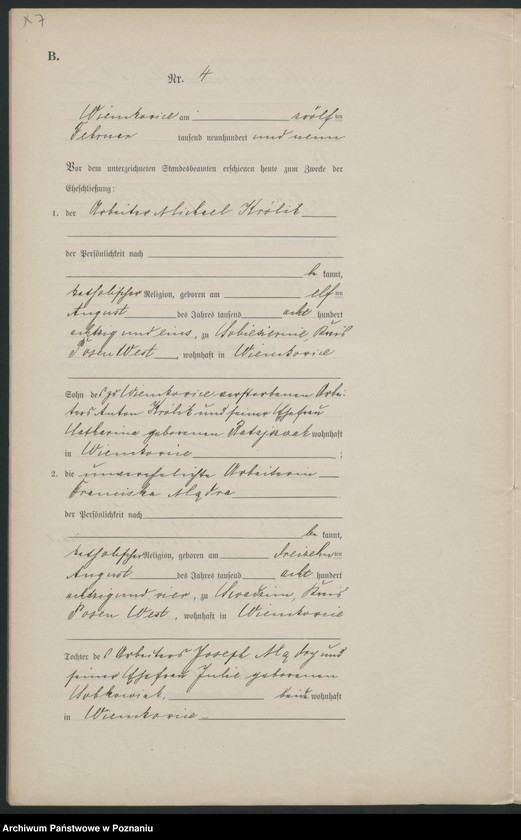 x7
B.
Nr. 4
Wienkowice am zwölf ten
Februar tausend neunhundert und neun
Vor dem unterzeichneten Standesbeamten erschienen heute zum Zwecke der
Eheschließung:
1. der Arbeiter Michael Królik
der Persönlichkeit nach
be kannt,
katholischer Religion, geboren am elf ten
August des Jahres tausend acht hundert
achtzig und eins, zu Sobiesiernie, Kreis
Posen West, wohnhaft in Wienkowice
Sohn des zu Wienkowice verstorbenen Arbei-
ters Anton Królik und seiner Ehefrau
Katharina geborenen Ratajczak wohnhaft
in Wienkowice ;
2. die unverehelichte Arbeiterin
Franciska Mądra
der Persönlichkeit nach
be kannt,
katholischer Religion, geboren am dreizehn ten
August des Jahres tausend acht hundert
achtzig und vier, zu Kreis
Posen West, wohnhaft in Wienkowice
Tochter des Arbeiters Joseph Mądry und
seiner Ehefrau Julie geborenen
Sobkowiak, beide wohnhaft
in Wienkowice
Archiwum Państwowe w Poznaniu